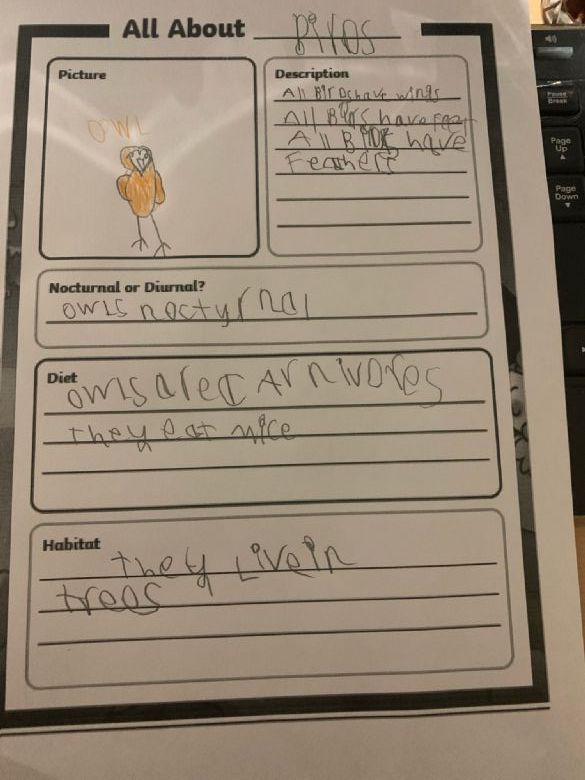 All About Birds
Picture
OWL
Description
All Birds have wings
All Birds have feet
All Birds have
Feathers
Nocturnal or Diurnal?
owls nocturnal
Diet
owls are cArnivores
they eat mice
Habitat
they Live in
trees
Pause
Break
Page
Up
Page
Down